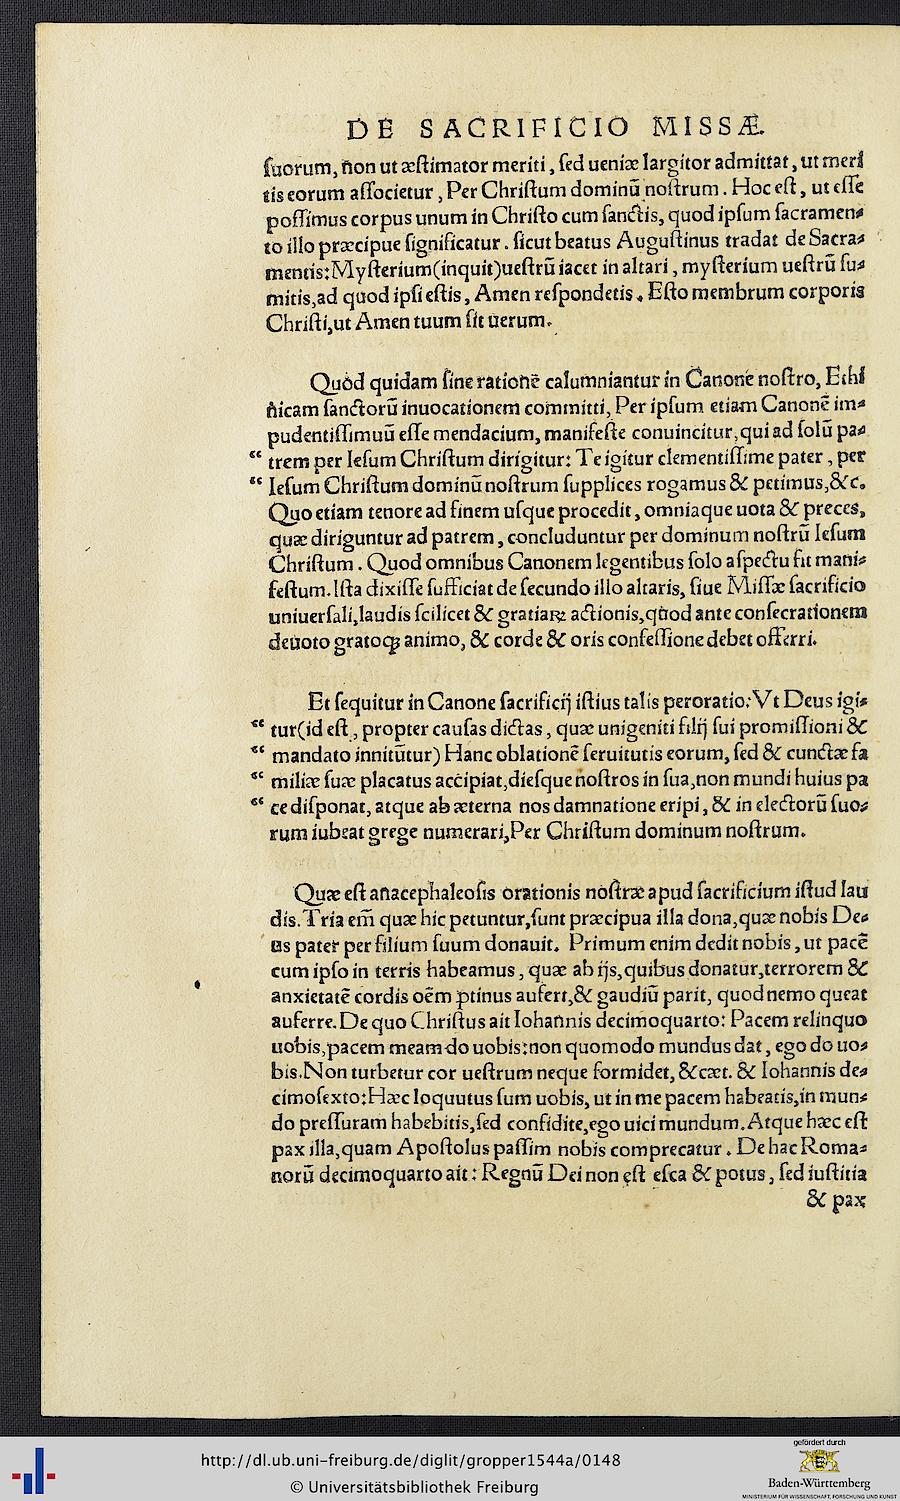 DE SACRIFICIO MISSÆ.
ſuorum, non ut æſtimator meriti, ſed ueniæ largitor admittat, ut meri
tis eorum aſſocietur, Per Chriſtum dominū noſtrum. Hoc eſt, ut eſſe
poſſimus corpus unum in Chriſto cum ſanctis, quod ipſum ſacramen⸗
to illo præcipue ſignificatur. ſicut beatus Auguſtinus tradat de Sacra⸗
mentis: Myſterium (inquit) ueſtrū iacet in altari, myſterium ueſtrū ſu⸗
mitis, ad quod ipſi eſtis, Amen reſpondetis. Eſto membrum corporis
Chriſti, ut Amen tuum ſit uerum.
Quòd quidam ſine rationē calumniantur in Canone noſtro, Ethi
nicam ſanctorū inuocationem committi, Per ipſum etiam Canonē im⸗
pudentiſſimuū eſſe mendacium, manifeſte conuincitur, qui ad ſolū pa⸗
“ trem per Ieſum Chriſtum dirigitur: Te igitur clementiſſime pater, per
“ Ieſum Chriſtum dominū noſtrum ſupplices rogamus & petimus, &c.
Quo etiam tenore ad finem uſque procedit, omniaque uota & preces,
quæ diriguntur ad patrem, concluduntur per dominum noſtrū Ieſum
Chriſtum. Quod omnibus Canonem legentibus ſolo aſpectu fit mani⸗
feſtum. Iſta dixiſſe ſufficiat de ſecundo illo altaris, ſiue Miſſæ ſacrificio
uniuerſali, laudis ſcilicet & gratiaꝝ actionis, quod ante conſecrationem
deuoto gratoqꝫ animo, & corde & oris confeſſione debet offerri.
Et ſequitur in Canone ſacrificij iſtius talis peroratio: Vt Deus igi⸗
“ tur (id eſt, propter cauſas dictas, quæ unigeniti filij ſui promiſſioni &
“ mandato innitūtur) Hanc oblationē ſeruitutis eorum, ſed & cunctæ fa
“ miliæ ſuæ placatus accipiat, dieſque noſtros in ſua, non mundi huius pa
“ ce diſponat, atque ab æterna nos damnatione eripi, & in electorū ſuo⸗
rum iubeat grege numerari, Per Chriſtum dominum noſtrum.
Quæ eſt anacephaleoſis orationis noſtræ apud ſacrificium iſtud lau
dis. Tria em̄ quæ hic petuntur, ſunt præcipua illa dona, quæ nobis De⸗
us pater per filium ſuum donauit. Primum enim dedit nobis, ut pacē
cum ipſo in terris habeamus, quæ ab ijs, quibus donatur, terrorem &
anxietatē cordis oēm ꝓtinus aufert, & gaudiū parit, quod nemo queat
auferre. De quo Chriſtus ait Iohannis decimoquarto: Pacem relinquo
uobis, pacem meam do uobis: non quomodo mundus dat, ego do uo⸗
bis. Non turbetur cor ueſtrum neque formidet, &cæt. & Iohannis de⸗
cimoſexto: Hæc loquutus ſum uobis, ut in me pacem habeatis, in mun⸗
do preſſuram habebitis, ſed confidite, ego uici mundum. Atque hæc eſt
pax illa, quam Apoſtolus paſſim nobis comprecatur. De hac Roma⸗
norū decimoquarto ait: Regnū Dei non eſt eſca & potus, ſed iuſtitia
& pax
http://dl.ub.uni-freiburg.de/diglit/gropper1544a/0148
© Universitätsbibliothek Freiburg
gefördert durch
Baden-Württemberg
MINISTERIUM FÜR WISSENSCHAFT, FORSCHUNG UND KUNST